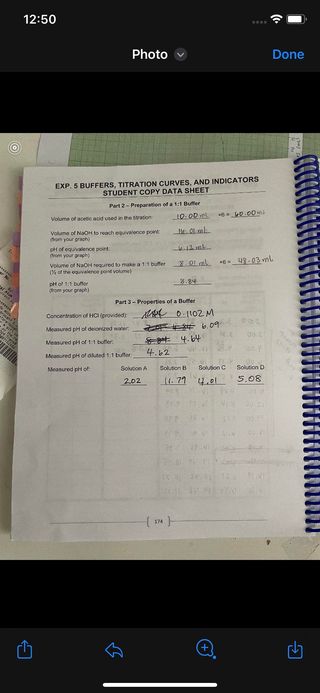 12:50
Photo
Done
EXP. 5 BUFFERS, TITRATION CURVES, AND INDICATORS
STUDENT COPY DATA SHEET
Part 2 – Preparation of a 1:1 Buffer
Volume of acetic acid used in the titration: 10.00 mL ×6 = 60.00 mL
Volume of NaOH to reach equivalence point: 16.01 mL
(from your graph)
pH of equivalence point:
(from your graph)
Volume of NaOH required to make a 1:1 buffer 8.01 mL ×6 = 48.03 mL
(½ of the equivalence point volume)
pH of 1:1 buffer
(from your graph)
Part 3 – Properties of a Buffer
Concentration of HCl (provided): 0.1102 M
Measured pH of deionized water: 6.09
Measured pH of 1:1 buffer: 4.64
Measured pH of diluted 1:1 buffer: 4.62
Measured pH of: Solution A Solution B Solution C Solution D
2.02 11.79 4.01 5.08
174